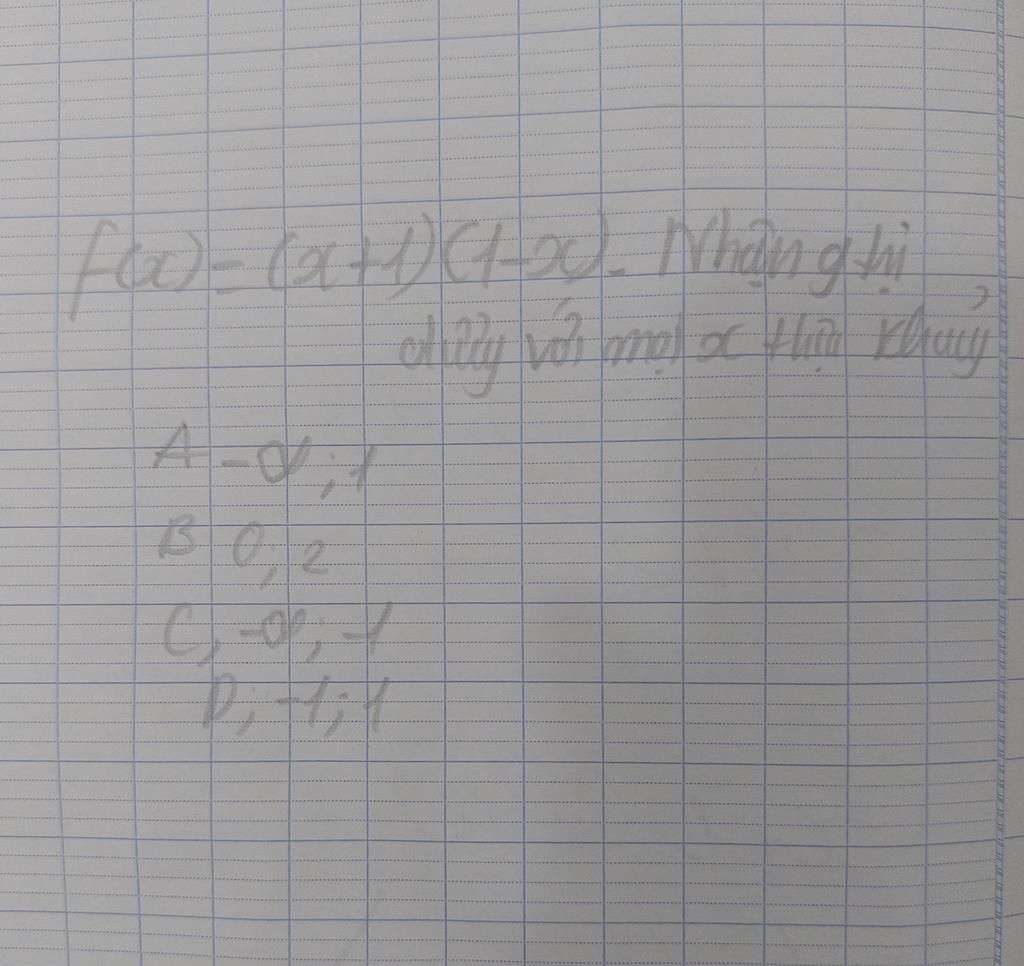 f(x) = (x+1)(1-x). Nhận gtrị
dương với mọi x thộc khoảng
A -∞; 1
B 0; 2
C, -∞; -1
D; -1; 1